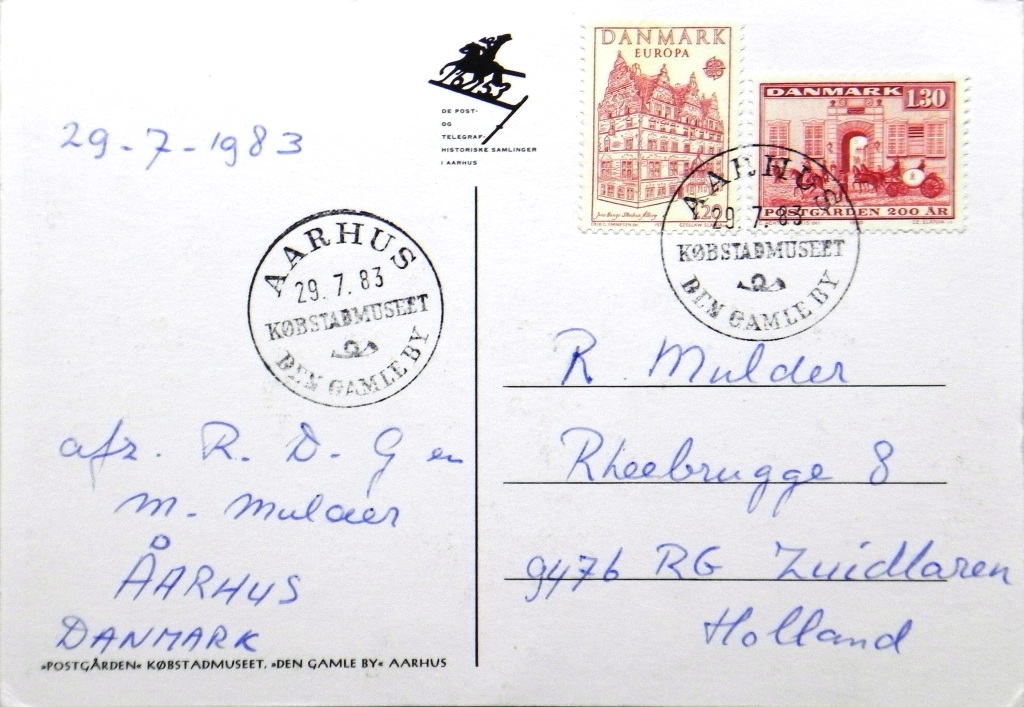 DE POST-
OG
TELEGRAF-
HISTORISKE SAMLINGER
I AARHUS
DANMARK
EUROPA
120
DANMARK 130
POSTGÅRDEN 200 ÅR
29-7-1983
AARHUS
29.7.83
KØBSTADMUSEET
DEN GAMLE BY
AARHUS
29.7.83
KØBSTADMUSEET
DEN GAMLE BY
afz. R. D. G en
M. Mulder
ÅARHUS
DANMARK
»POSTGÅRDEN« KØBSTADMUSEET, »DEN GAMLE BY« AARHUS
R. Mulder
Rheebrugge 8
9476 RG Zuidlaren
Holland